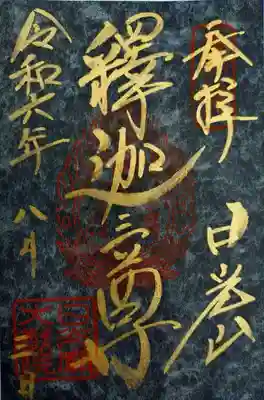 奉拝
日光山
釋迦三尊
令和六年
八月
三日